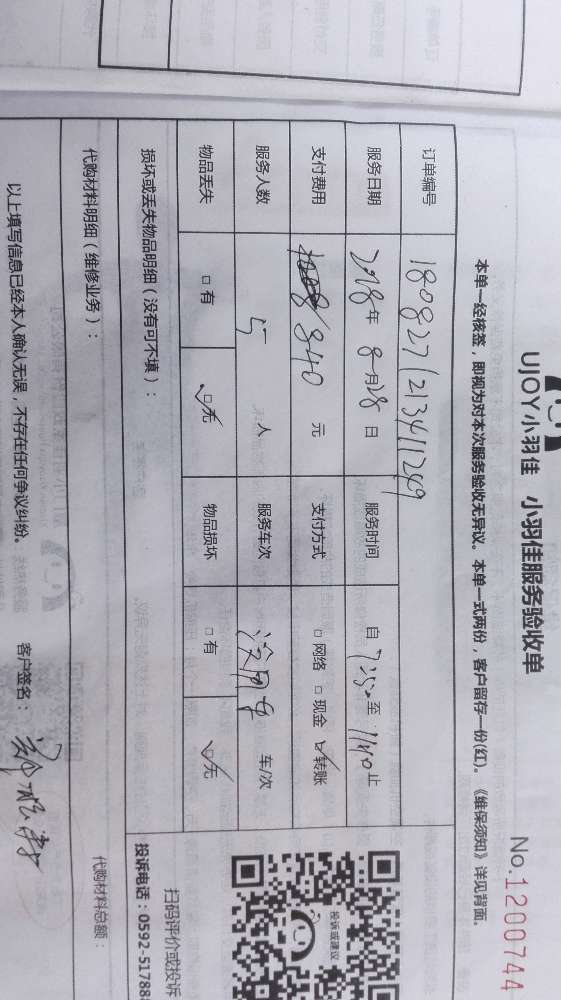 UJOY小羽佳 小羽佳服务验收单
No.1200744
本单一经核签，即视为对本次服务验收无异议。本单一式两份，客户留存一份(红)。《维保须知》详见背面。
订单编号 1808271213411249
服务日期 2018年 8月28日 服务时间 自 7:50 至 11:40 止
支付费用 840 元 支付方式 □网络 □现金 ☑转账
服务人数 5 人 服务车次 没用车 车/次
物品丢失 □有 ☑无 物品损坏 □有 ☑无
损坏或丢失物品明细（没有可不填）：
代购材料明细（维修业务）：
代购材料总额：
以上填写信息已经本人确认无误，不存在任何争议纠纷。
客户签名：
投诉或建议
扫码评价或投诉
投诉电话：0592-51788